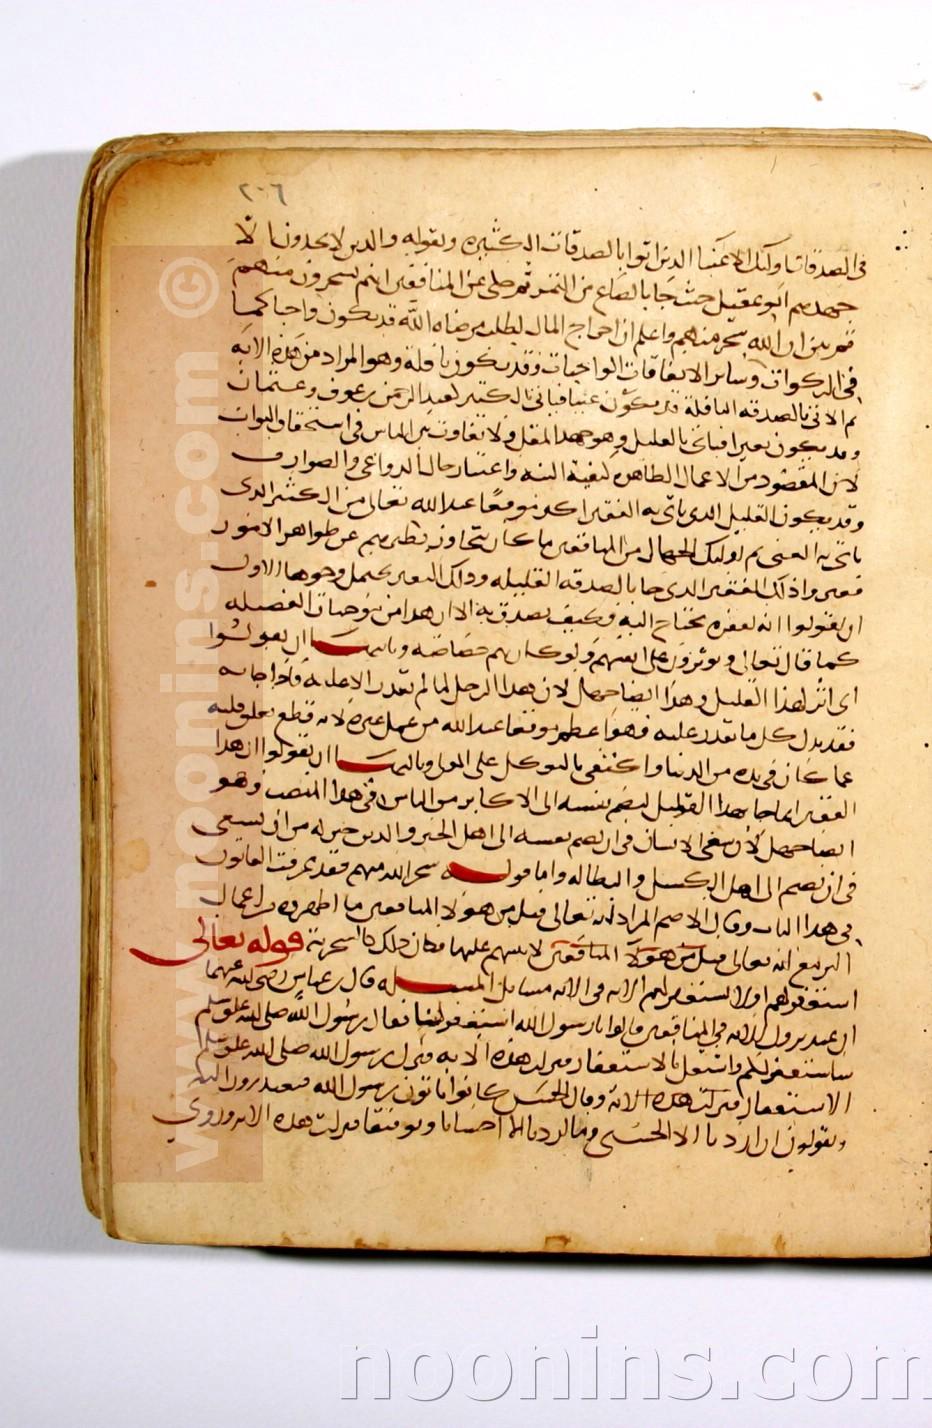 ٢٠٦
فى الصدقات اوليك الاغنيا الذين اتوا بالصدقات الكثيره وبقوله والذين لا يجدون الا
جهدهم ابو عقيل حيث جا بالصاع من التمر ثم حكى عن المنافقين انهم يسخرون منهم
ثم بين ان الله سخر منهم واعلم ان اخراج المال لطلب مرضاه الله قد يكون واجبا كما
فى الزكوات وساير الانفاقات الواجبات وقد يكون نافلة وهو المراد من هذه الايه
ثم الاتى بالصدقه النافلة قد يكون غنيا فياتى بالكثير كعبد الرحمن بن عوف وعثمان
وقد يكون فقيرا فياتى بالقليل وهو جهد المقل ولا تفاوت بين الناس فى استحقاق الثواب
لان المقصود من الاعمال الظاهره كيفية النيه واعتبار حال الدواعى والصوارف
وقد يكون القليل الذى ياتى به الفقير اكثر موقعا عند الله تعالى من الكثير الذى
ياتى به الغنى ثم اوليك الجهال من المنافقين ما كان يتجاوز نظرهم عن ظواهر الامور
فعيروا ذلك الفقير الذى جا بالصدقه القليله وذلك التعيير يحتمل وجوها الاول
ان يقولوا انه لفقره محتاج اليه فكيف يتصدق به الا ان هذا من موجبات الفضيله
كما قال تعالى ويوثرون على انفسهم ولو كان بهم خصاصه وثانيها ان يقولوا
اى اثر لهذا القليل وهذا ايضا جهل لان هذا الرجل لما لم يقدر الا عليه فاذا جا به
فقد بذل كل ما يقدر عليه فهو اعظم موقعا عند الله من عمل غيره لانه قطع تعلق قلبه
عما كان فى يده من الدنيا واكتفى بالتوكل على المولى وثالثها ان يقولوا ان هذا
الفقير انما جا بهذا القليل ليضم نفسه الى الاكابر من الناس فى هذا المنصب وهو
ايضا جهل لان سعى الانسان فى ان يضم نفسه الى اهل الخير والدين خير له من ان يسعى
فى ان يضم الى اهل الكسل والبطاله واما قوله سخر الله منهم فقد عرفت القانون
فى هذا الباب وقال الاصم المراد انه تعالى قبل من هولا المنافقين ما اظهروه من اعمال
البر مع انه تعالى قبل من هولا المنافقين لا يثيبهم عليها فكان ذلك كالسخرية قوله تعالى
استغفر لهم اولا تستغفر لهم الايه فى الايه مسايل المسله قال بن عباس رضى الله عنهما
ان عند نزول الايه فى المنافقين قالوا يا رسول الله استغفر لنا فقال رسول الله صلى الله عليه وسلم
ساستغفر لكم واشتغل بالاستغفار فنزلت هذه الايه فترك رسول الله صلى الله عليه وسلم
الاستغفار فنزلت هذه الايه وقال الحسن كانوا ياتون رسول الله فيعتذرون اليه
ويقولون ان اردنا الا الحسنى وما اردنا الا احسانا وتوفيقا فنزلت هذه الايه وروى
www.noonins.com ©
noonins.com